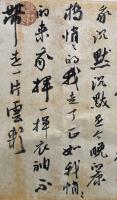 我沉默沉默是今晚康
橋悄悄的我走了正如我悄悄
的来我揮一揮衣袖不
帶走一片雲彩